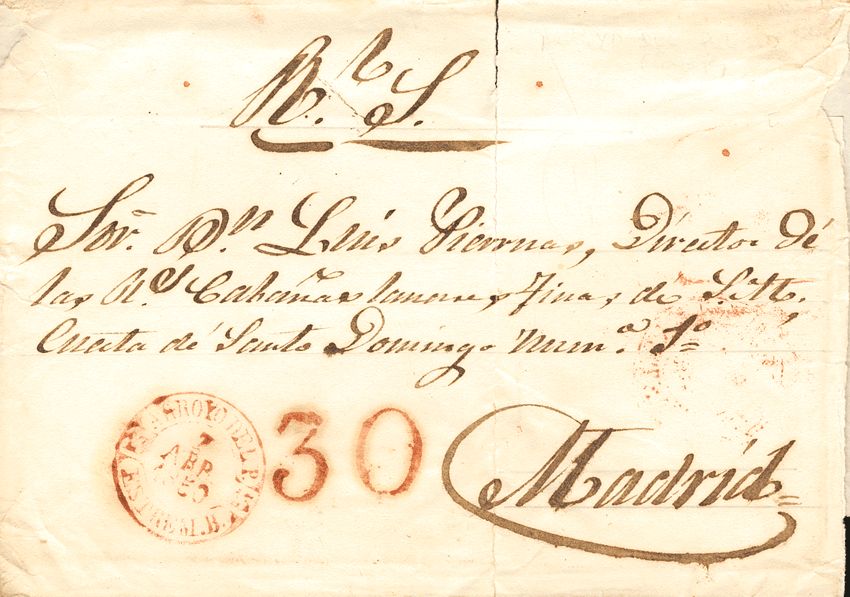 Rl. S.
Sor. Dn. Luis Viernas, Director de
las Rs. Cabañas lanares finas de S. M.
Cuesta de Santo Domingo Numo. 1o
ARROYO DEL P.
7
ABR
1850
ESTREM.B.
30
Madrid